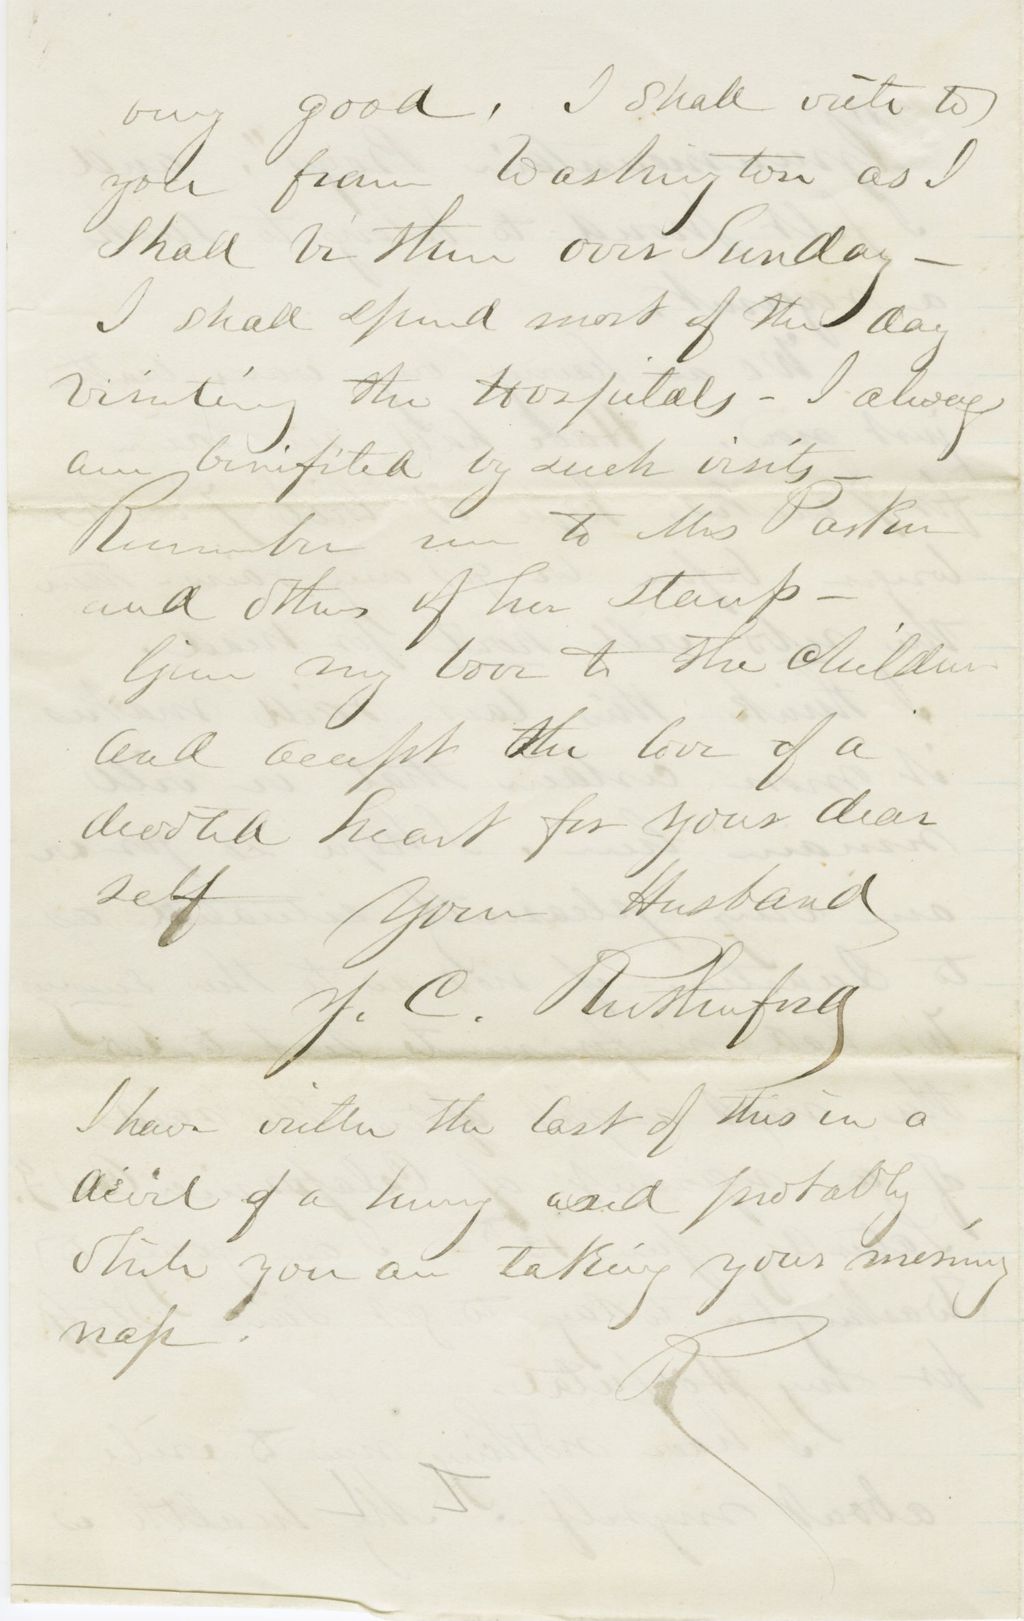 very good, I shall write to
you from Washington as I
shall be there over Sunday –
I shall spend most of the day
visiting the Hospitals – I always
am benifited by such visits –
Remember me to Mrs Parker
and others of her stamp –
Give my love to the children
and accept the love of a
devoted heart for your dear
self Your Husband
J. C. Rutherford
I have written the last of this in a
devil of a hurry and probably
while you are taking your morning
nap.
R